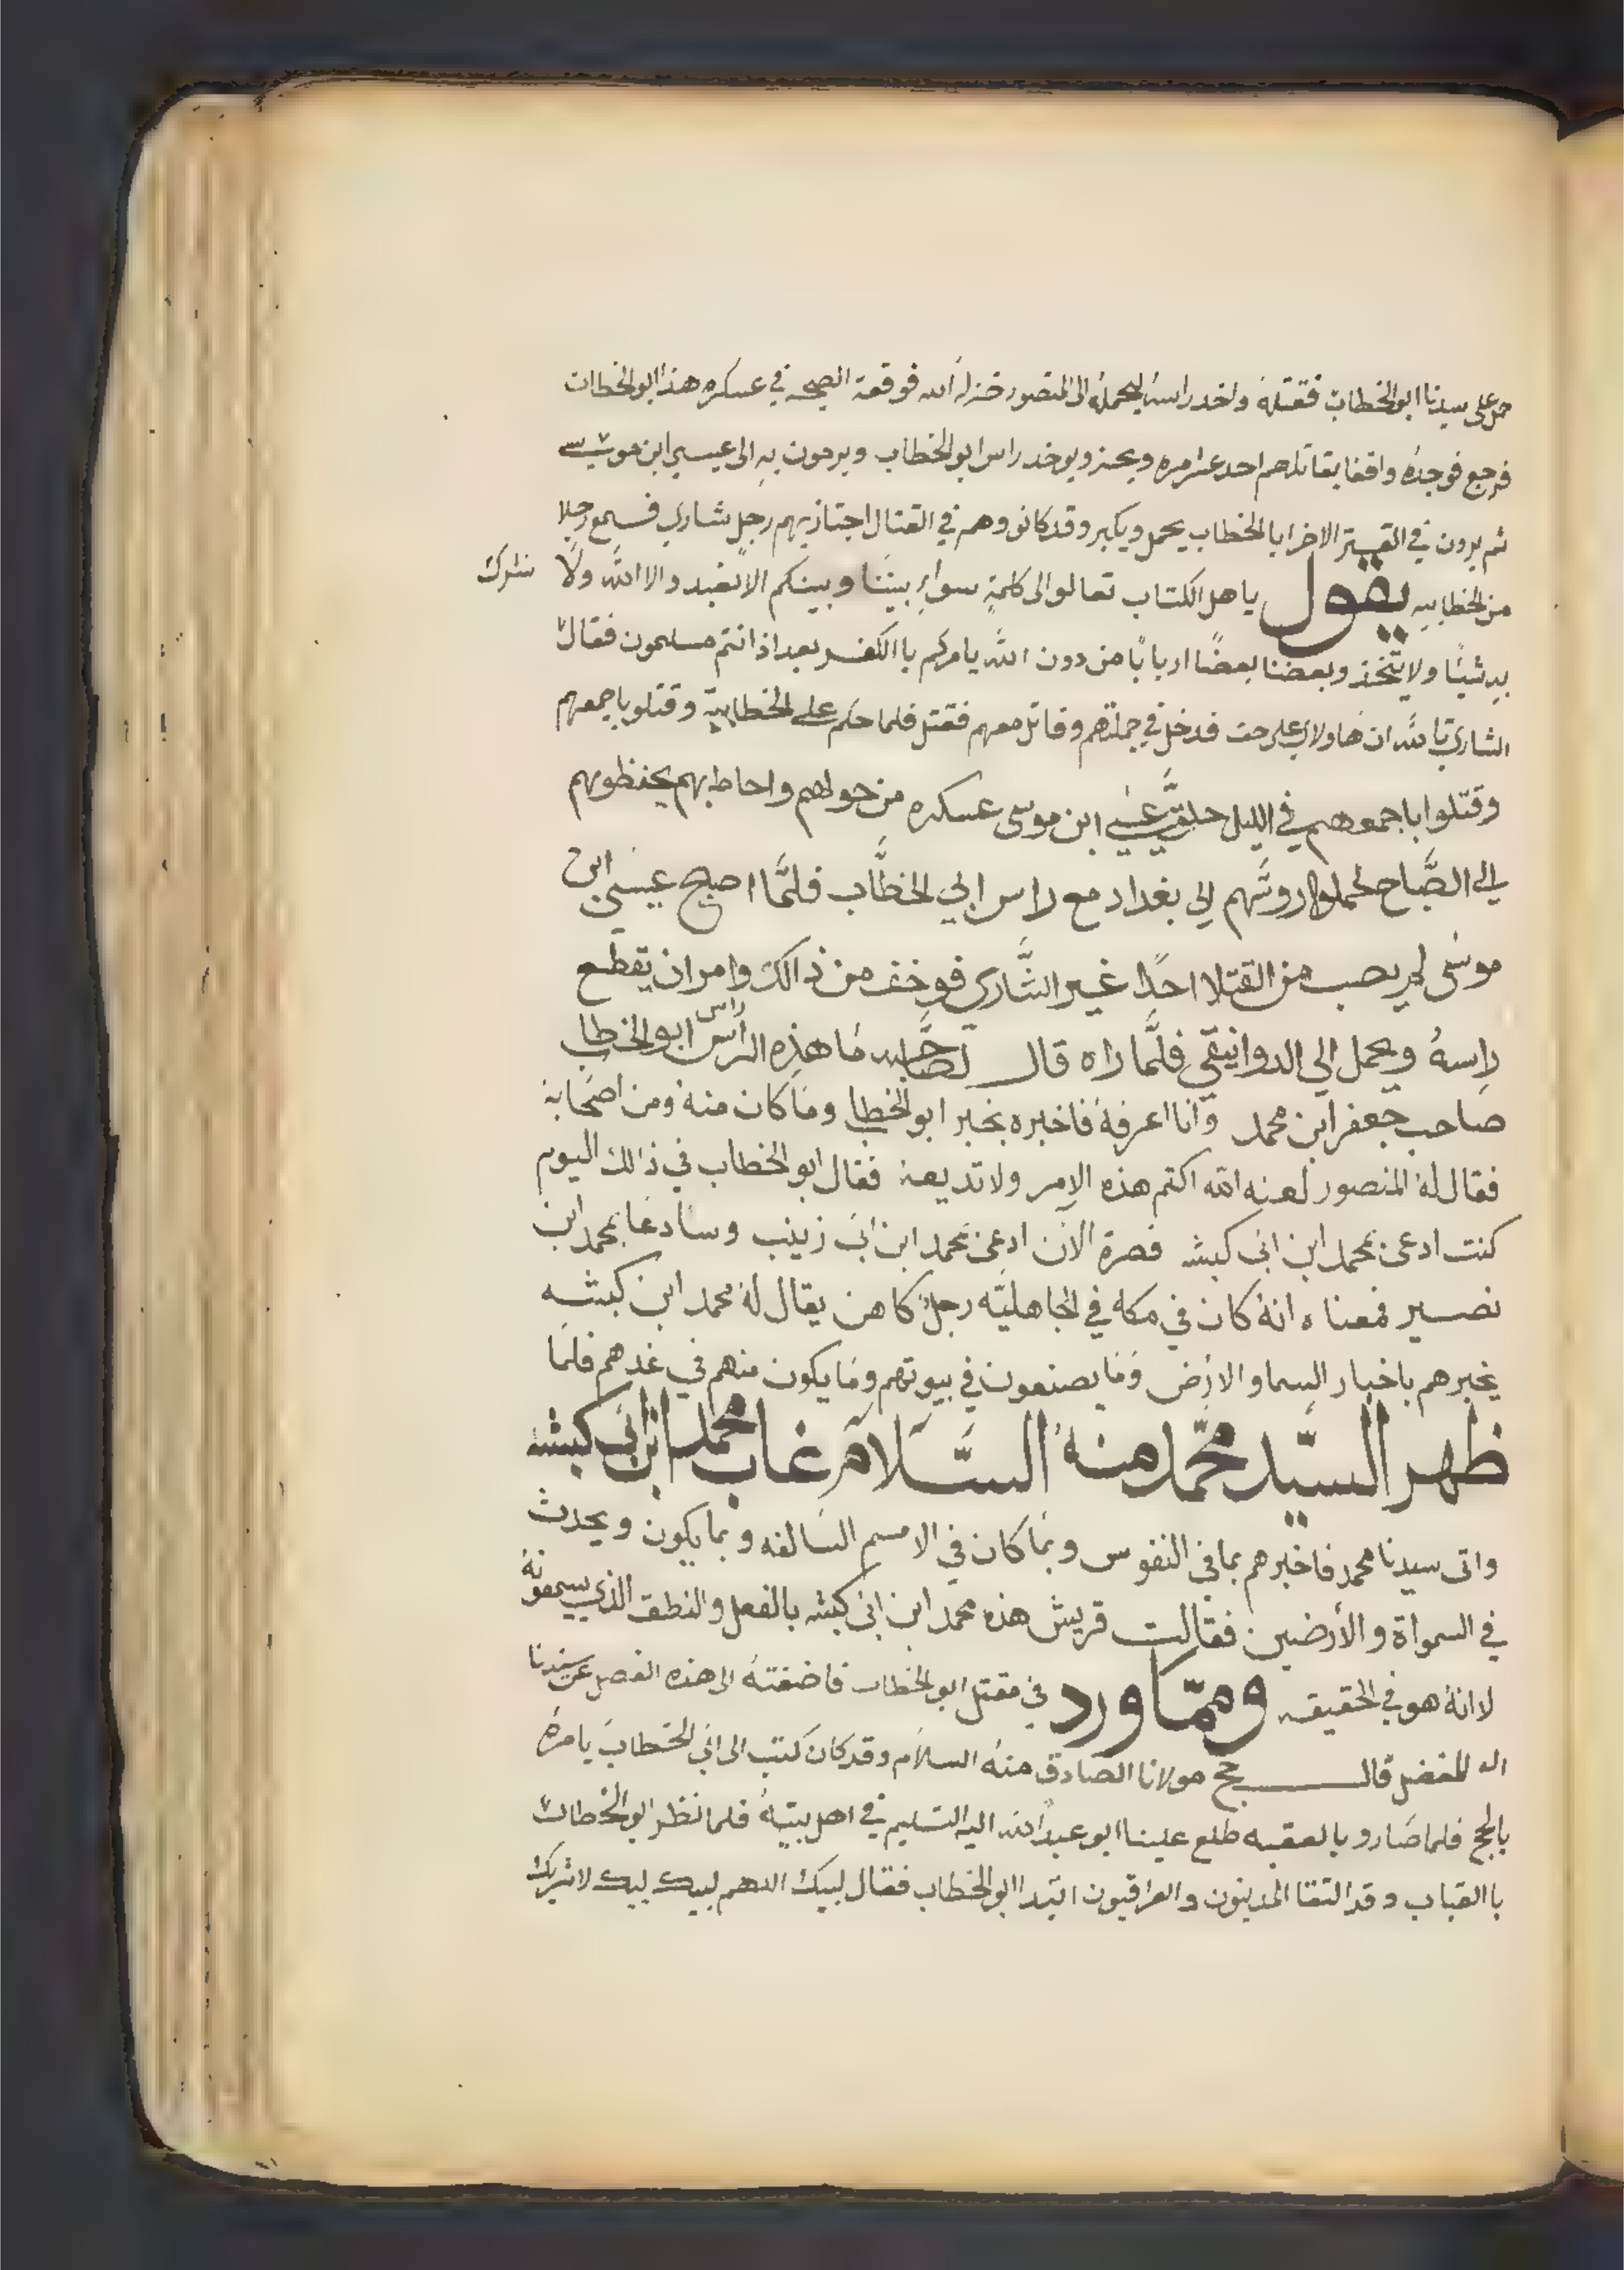 حمل على سيدنا ابو الخطاب فقتله واخد راسه ليحمله الى المنصور خزله الله فوقعة الصيحه في عسكره هذا ابو الخطاب
فرجع فوجده واقفا يقاتلهم احد عشر مره ويحز ويوخد راس ابو الخطاب ويرمون به الى عيسى ابن موسى
ثم يرون في القيتر الاخر ابا الخطاب يحمل ويكبر وقد كانو وهم في القتال اجتاز بهم رجل شاري فسمع رجلا
من الخطابيه يقول ياهل الكتاب تعالو الى كلمة سواء بيننا وبينكم الا نعبد والا الله ولا نشرك
به شيئا ولا يتخذ وبعضنا بعضا اربابا من دون الله يامركم باالكفر بعد اذ انتم مسلمون فقال
الشاري تا لله ان هاولاي على حق فدخل في جملتهم وقاتل معهم فقتل فلما حكم على الخطابية وقتلو باجمعهم
وقتلوا باجمعوهم في الليل حلق عيسى ابن موسى عسكره من حولهم واحاط بهم يحفظوهم
الي الصباح لحملوا روسهم الى بغداد مع راس ابي الخطاب فلما اصبح عيسى ابن
موسى لم يصب من القتلا احدا غير الشاري فوخف من ذالك وامر ان يقطع
راسه ويحمل الي الدوانيقي فلما راه قال لصاحبه ما هذه الراس راس ابو الخطاب
صاحب جعفر ابن محمد وانا اعرفه فاخبره بخبر ابو الخطاب وما كان منه ومن اصحابه
فقال له المنصور لعنه الله اكتم هذه الامر ولا تديعه فقال ابو الخطاب في ذالك اليوم
كنت ادعى بمحمد ابن ابي كبشه فصرة الان ادعى بمحمد ابن ابي زينب وسادعا بمحمد ابن
نصير فمعناه انه كان في مكه في الجاهليه رجل كاهن يقال له محمد ابن كبشه
يخبرهم باخبار السما والارض وما يصنعون في بيوتهم وما يكون منهم في غدهم فلما
ظهر السيد محمد منه السلام غاب محمد ابن ابي كبشه
واتى سيدنا محمد فاخبرهم بما في النفوس وبما كان في الامسم السالفه وبما يكون ويحدث
في السمواة والأرضين فقالت قريش هذه محمد ابن ابي كبشه بالفعل والنطق الذي يسمعونه
لا انه هو في الحقيقه ومما ورد في مقتل ابو الخطاب فاضفته الى هذه الفصل عن سيدنا
اله المفضل قال حج مولانا الصادق منه السلام وقد كان كتب الى ابي الخطاب يامره
بالحج فلما صارو بالعقبه طلع علينا ابو عبد الله اليه التسليم في اهل بيته فلما نظر ابو الخطاب
باالقباب وقد التقا المدينون والعراقيون ابتدا ابو الخطاب فقال لبيك اللهم لبيك لبيك لا شريك